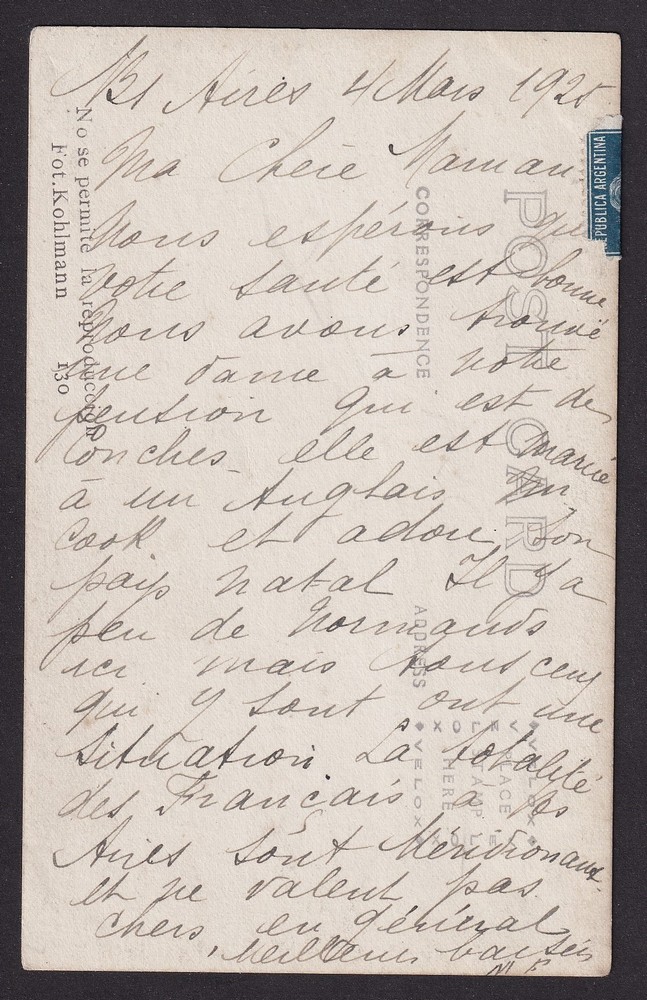 Bs Aires 4 Mars 1925
Ma Chère Maman
Nous espérons que
votre santé est bonne
Nous avons trouvé
une dame à notre
pension qui est de
Conches elle est mariée
à un Anglais
Cook et adore son
pays natal Il y a
peu de Normands
ici mais tous ceux
qui y sont ont une
situation La totalité
des Français à Bs
Aires sont Méridionaux
et ne valent pas
chers en général
Meilleurs baisers
No se permite la reproduccion
Fot. Kohlmann 130
REPUBLICA ARGENTINA
POST CARD
CORRESPONDENCE
ADDRESS
VELOX
PLACE
STAMP
HERE
VELOX